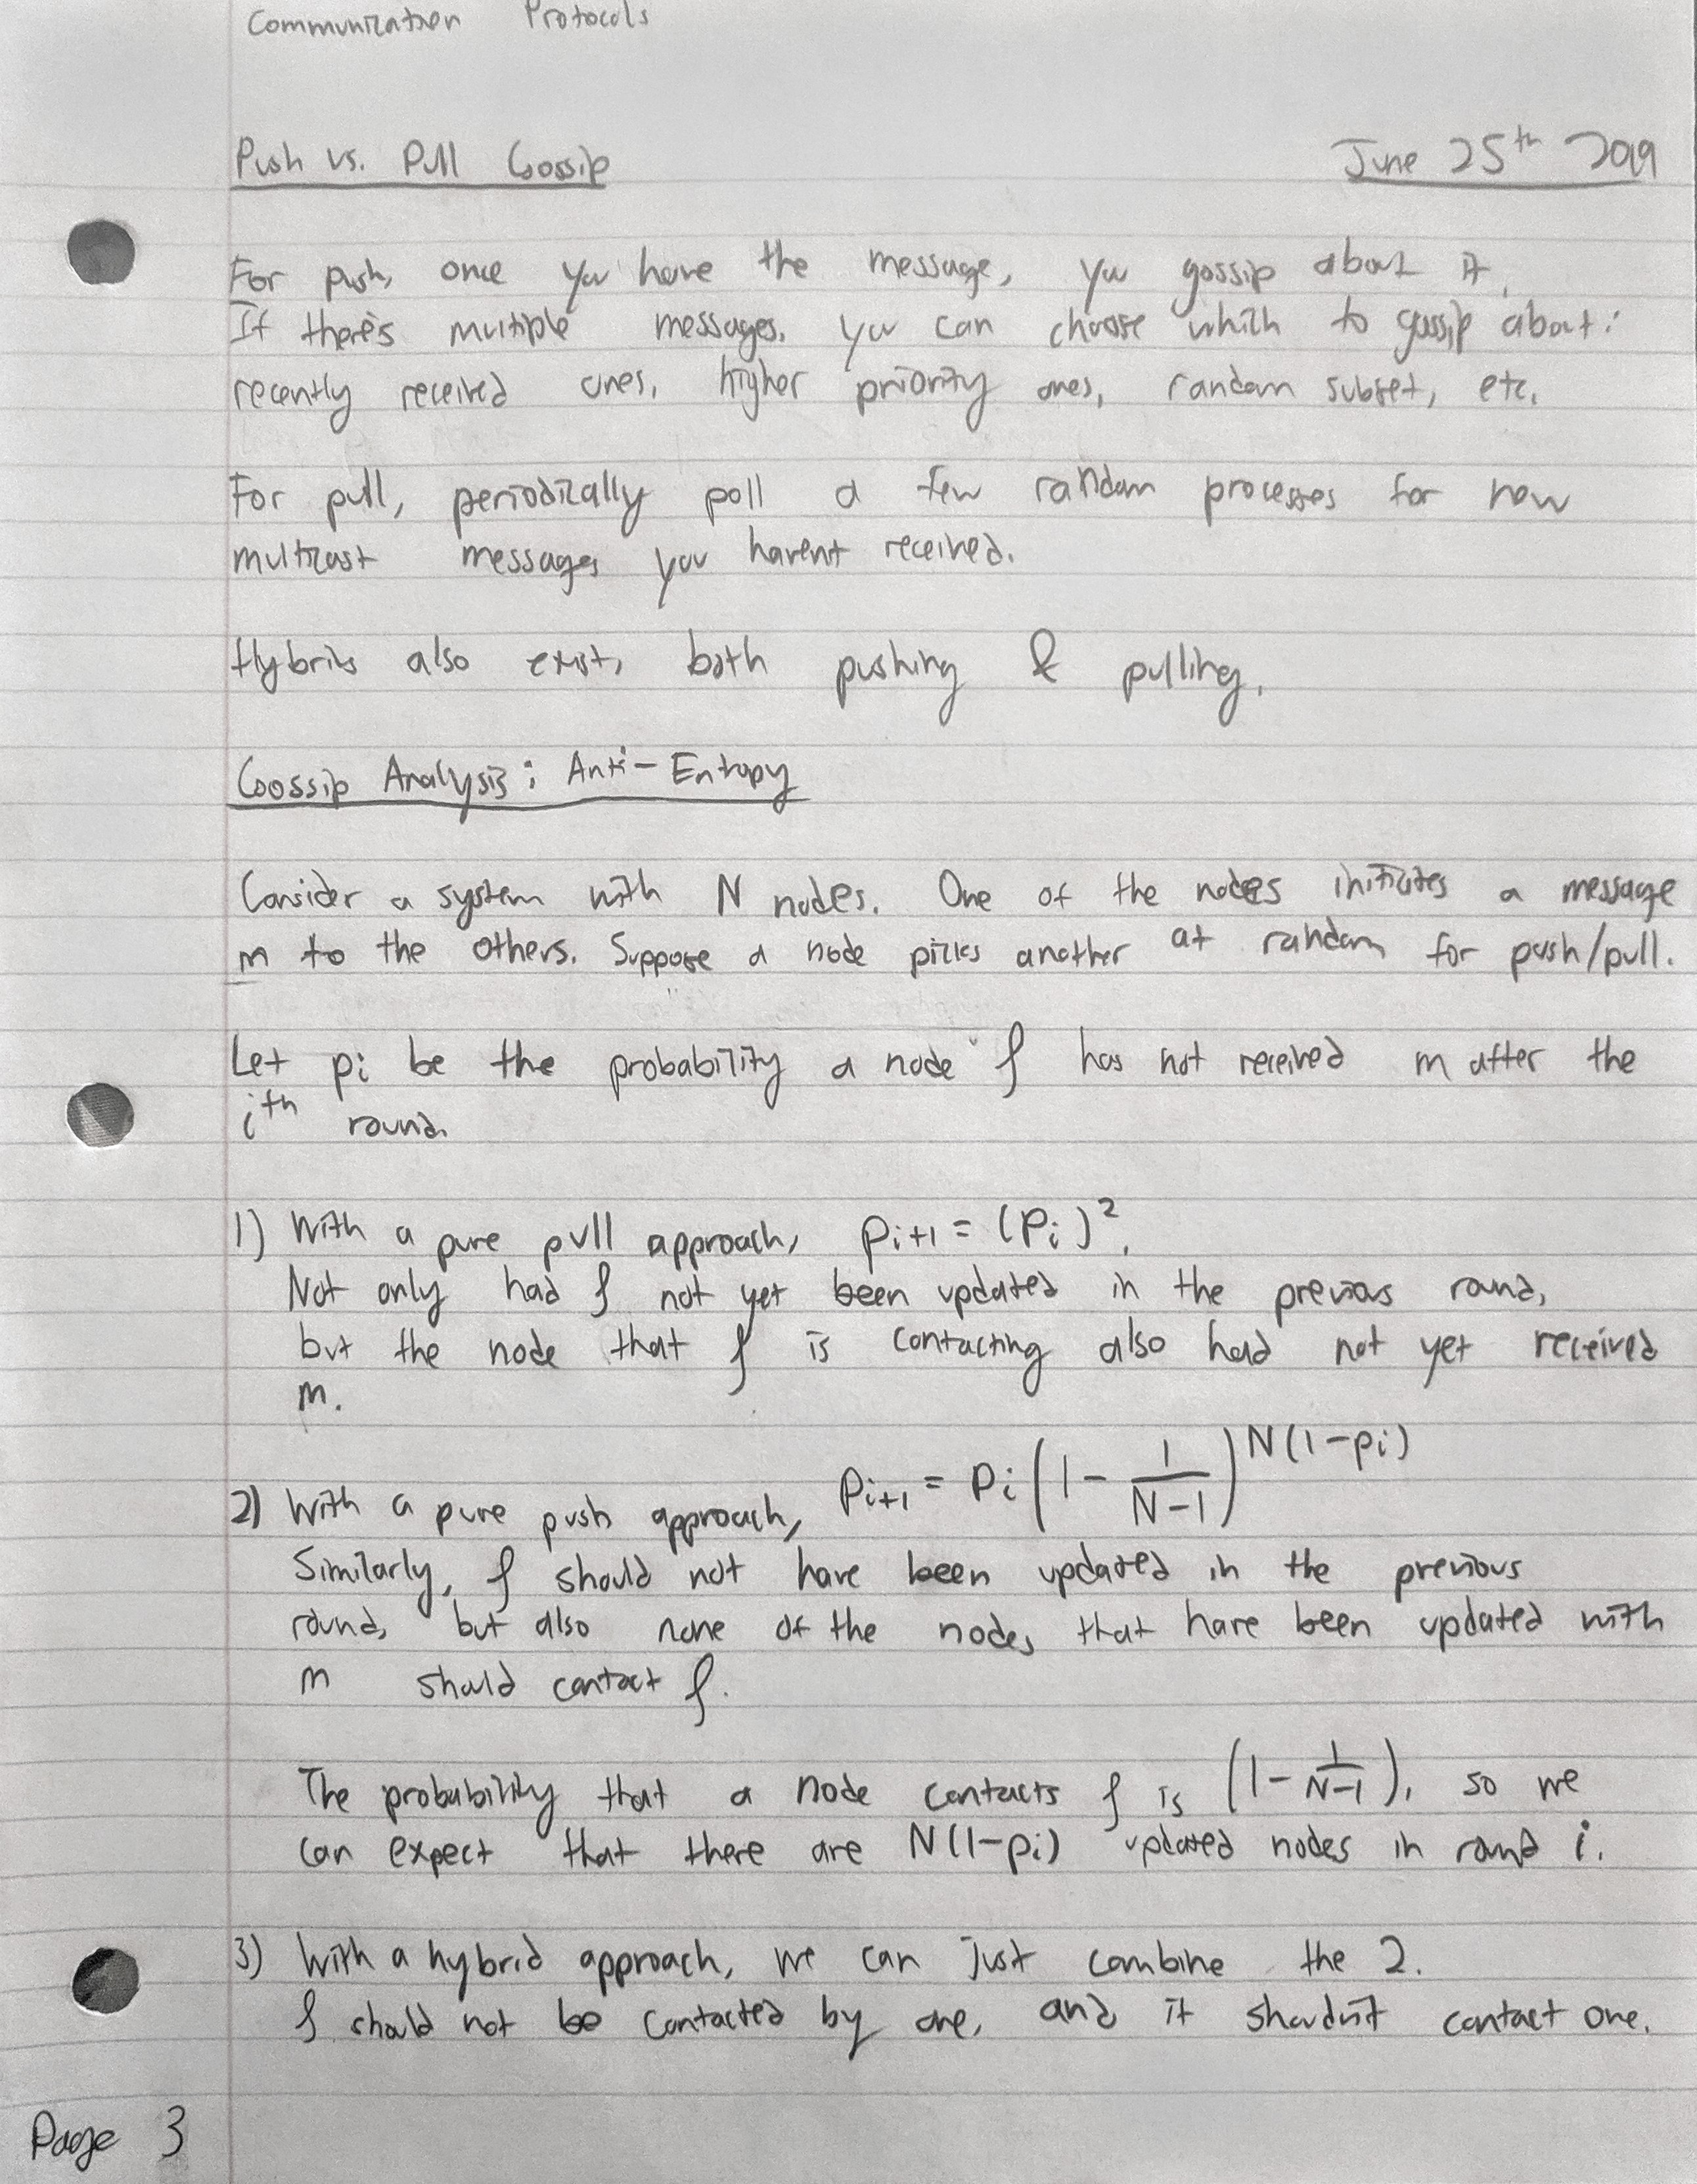 Communication Protocols
Push vs. Pull Gossip June 25th 2019
For push, once you have the message, you gossip about it.
If there's multiple messages, you can choose which to gossip about:
recently received ones, higher priority ones, random subset, etc.
For pull, periodically poll a few random processes for new
multicast messages you havent received.
Hybrids also exist, both pushing & pulling.
Gossip Analysis: Anti-Entropy
Consider a system with N nodes. One of the nodes initiates a message
m to the others. Suppose a node picks another at random for push/pull.
Let pi be the probability a node f has not received m after the
ith round.
1) With a pure pull approach, Pi+1 = (Pi)².
Not only had f not yet been updated in the previous round,
but the node that f is contacting also had not yet received
m.
2) With a pure push approach, Pi+1 = Pi (1 - 1/(N-1))^N(1-pi)
Similarly, f should not have been updated in the previous
round, but also none of the nodes that have been updated with
m should contact f.
The probability that a node contacts f is (1 - 1/(N-1)), so we
can expect that there are N(1-pi) updated nodes in round i.
3) With a hybrid approach, we can just combine the 2.
f should not be contacted by one, and it shouldn't contact one.
Page 3